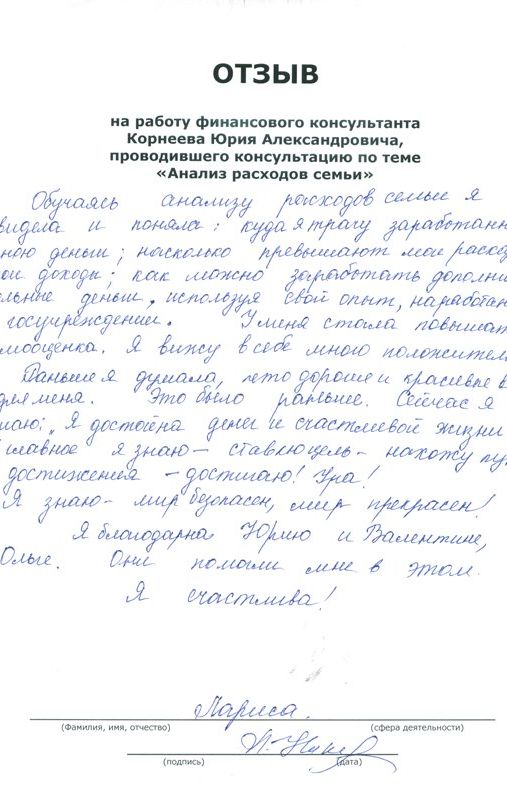 ОТЗЫВ
на работу финансового консультанта
Корнеева Юрия Александровича,
проводившего консультацию по теме
«Анализ расходов семьи»
Обучаясь анализу расходов семьи я
видела и поняла: куда я трачу заработанн
ною деньги; насколько превышают мои расхо
ои доходы; как можно заработать дополни
ельные деньги, используя свой опыт, наработан
госучреждении. У меня стала повышат
мооценка. Я вижу в себе много положител
Раньше я думала, что дорогие и красивые в
для меня. Это было раньше. Сейчас я
наю: „Я достойна денег и счастливой жизни
главное я знаю – ставлю цель – нахожу пу
достижения – достигаю! Ура!
Я знаю – мир безопасен, мир прекрасен!
Я благодарна Юрию и Валентине,
Ольге. Они помогли мне в этом.
Я счастлива!
Лариса.
(Фамилия, имя, отчество) (сфера деятельности)
(подпись) (дата)